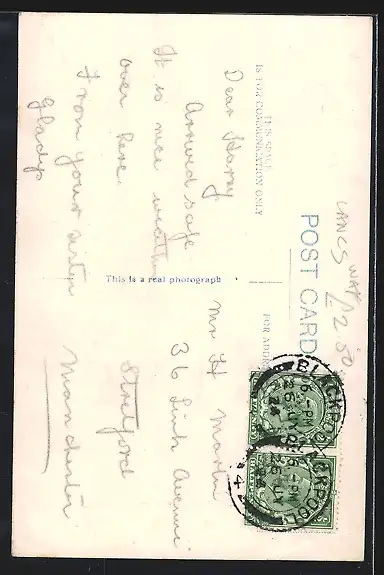 LANCS WAR
£2.50
POST CARD
THIS SPACE
IS FOR COMMUNICATION ONLY
FOR ADDRESS
This is a real photograph
Dear Harry
Arrived safe
It is nice weather
over here.
From your sister
Gladys
Mr H Martin
36 Avenue
Stretford
Manchester
BLACKPOOL
6 - PM
26 JY
24
BLACKPOOL
6 - PM
26 JY
24